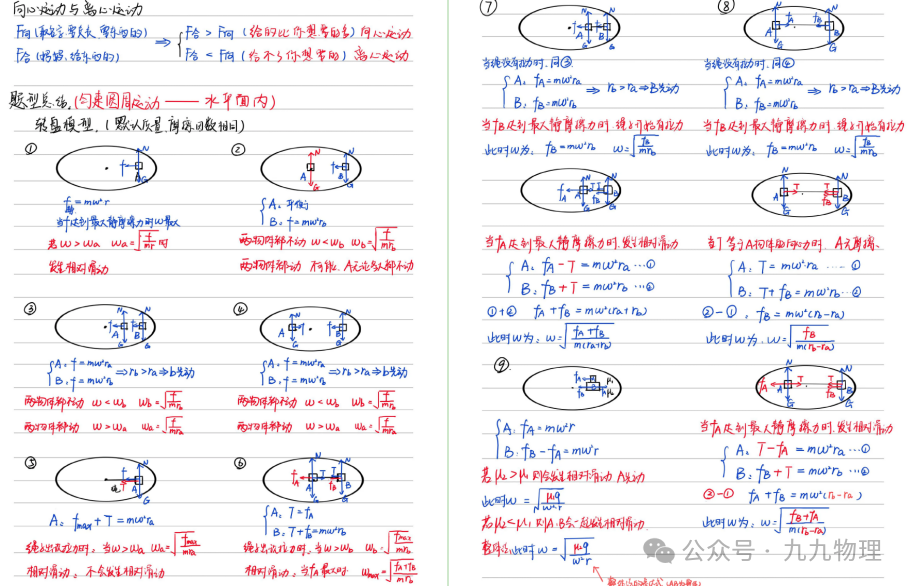 向心运动与离心运动
F向(表示需要关系,需要的)
F合(提供,给的)
⇒ { F合 > F向 (给的比你想要的多) 向心运动
F合 < F向 (给不了你想要的) 离心运动
题型总结.(匀速圆周运动 —— 水平面内)
转盘模型.(默认质量,摩擦因数相同)
①
f = mω²r
当f达到最大静摩擦力时ω最大
若ω>ωa ωa=√(f/mr)时
发生相对滑动
②
{ A: 平衡
B: f=mω²rb
两物体都不动 ω<ωb ωb=√(f/mrb)
两物体都动 不可能, A无论多大都不动
③
{ A: f=mω²ra
B: f=mω²rb
⇒rb>ra⇒b先动
两物体都不动 ω<ωb ωb=√(f/mrb)
两物体都动 ω>ωa ωa=√(f/mra)
④
{ A: f=mω²ra
B: f=mω²rb
⇒rb>ra⇒b先动
两物体都不动 ω<ωb ωb=√(f/mrb)
两物体都动 ω>ωa ωa=√(f/mra)
⑤
A: fmax+T=mω²ra
绳子出现拉力时: 当ω>ωa ωa=√(fmax/mra)
相对滑动: 不会发生相对滑动
⑥
{ A: T=fA
B: T+fB=mω²rb
绳子出现拉力时: 当ω>ωb ωb=√(fmax/mrb)
相对滑动: 当fA最大时 ωmax=√(fA+fB/mrb)
⑦
当绳没有拉力时, 同③
{ A: fA=mω²ra
B: fB=mω²rb
⇒ rb>ra⇒B先动
当fB达到最大静摩擦力时 绳子开始有拉力
此时ω为: fB=mω²rb ω=√(fB/mrb)
当fA达到最大静摩擦力时,发生相对滑动
{ A: fA-T=mω²ra ···①
B: fB+T=mω²rb ···②
①+② fA+fB=mω²(ra+rb)
此时ω为: ω=√(fA+fB/m(ra+rb))
⑧
当绳没有拉力时, 同④
{ A: fA=mω²ra
B: fB=mω²rb
⇒ rb>ra⇒B先动
当fB达到最大静摩擦力时 绳子开始有拉力
此时ω为: fB=mω²rb ω=√(fB/mrb)
当T等于A物体的向心力时, A无摩擦.
{ A: T=mω²ra ···①
B: T+fB=mω²rb ···②
②-①, fB=mω²(rb-ra)
此时ω为: ω=√(fB/m(rb-ra))
当fA达到最大静摩擦力时,发生相对滑动
{ A: T-fA=mω²ra ···①
B: fB+T=mω²rb ···②
②-① fA+fB=mω²(rb-ra)
此时ω为: ω=√(fB+fA/m(rb-ra))
⑨
{ A: fA=mω²r
B: fB-fA=mω²r
若μ2>μ1则会发生相对滑动 A先动
若μ2<μ1 则A.B会一起发生相对滑动.
公众号·九九物理